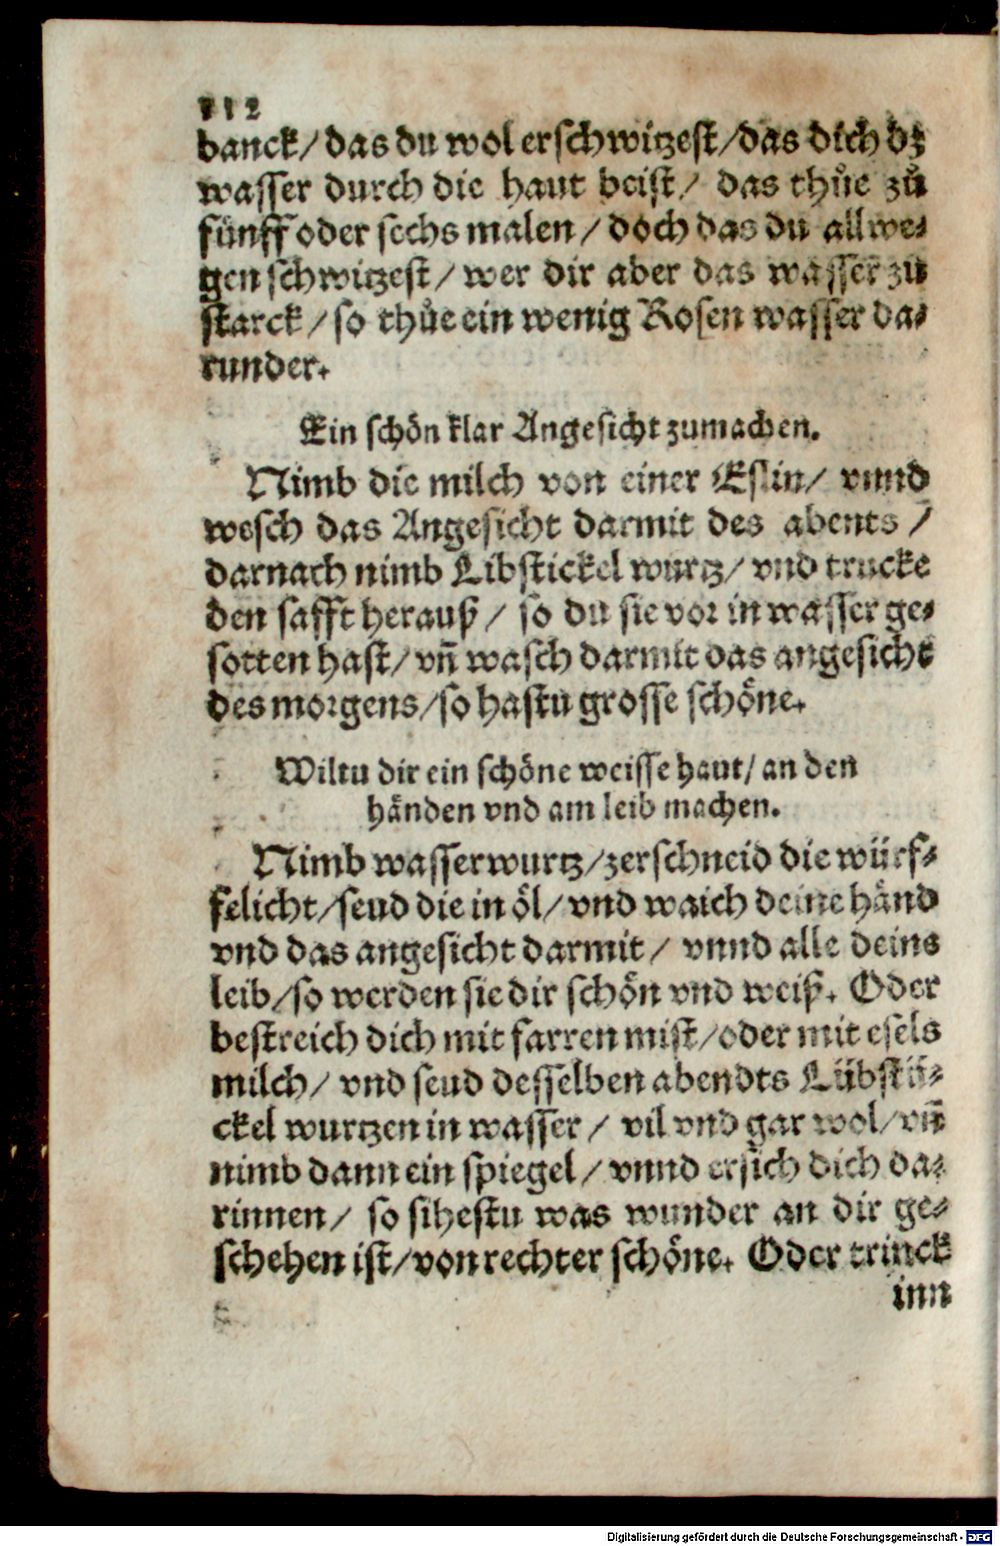 112
banck/ das du wol erschwitzest/das dich dz
wasser durch die haut beist/ das thuͦe zuͦ
fünff oder sechs malen/ doch das du allwe⸗
gen schwitzest/ wer dir aber das wasser zu
starck/ so thuͦe ein wenig Rosen wasser da⸗
runder.
Ein schön klar Angesicht zumachen.
Nimb die milch von einer Eslin/ vnnd
wesch das Angesicht darmit des abents/
darnach nimb Libstickel wurtz/ vnd trucke
den safft herauß/ so du sie vor in wasser ge⸗
sotten hast/ vn̄ wasch darmit das angesicht
des morgens/so hastu grosse schöne.
Wiltu dir ein schöne weisse haut/ an den
händen vnd am leib machen.
Nimb wasserwurtz/zerschneid die würf⸗
felicht/seud die in öl/ vnd waich deine händ
vnd das angesicht darmit/ vnnd alle deins
leib/so werden sie dir schön vnd weiß. Oder
bestreich dich mit farren mist/oder mit esels
milch/ vnd seud desselben abendts Lübstü⸗
ckel wurtzen in wasser/ vil vnd gar wol/ vn̄
nimb dann ein spiegel/ vnnd ersich dich da⸗
rinnen/ so sihestu was wunder an dir ge⸗
schehen ist/von rechter schöne. Oder trinck
inn
Digitalisierung gefördert durch die Deutsche Forschungsgemeinschaft - DFG